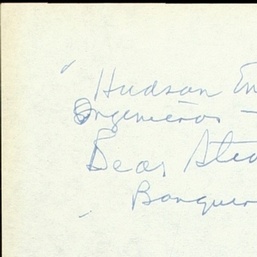 " Hudson En
Ingenieros -
Bear Stea
Banquer
-